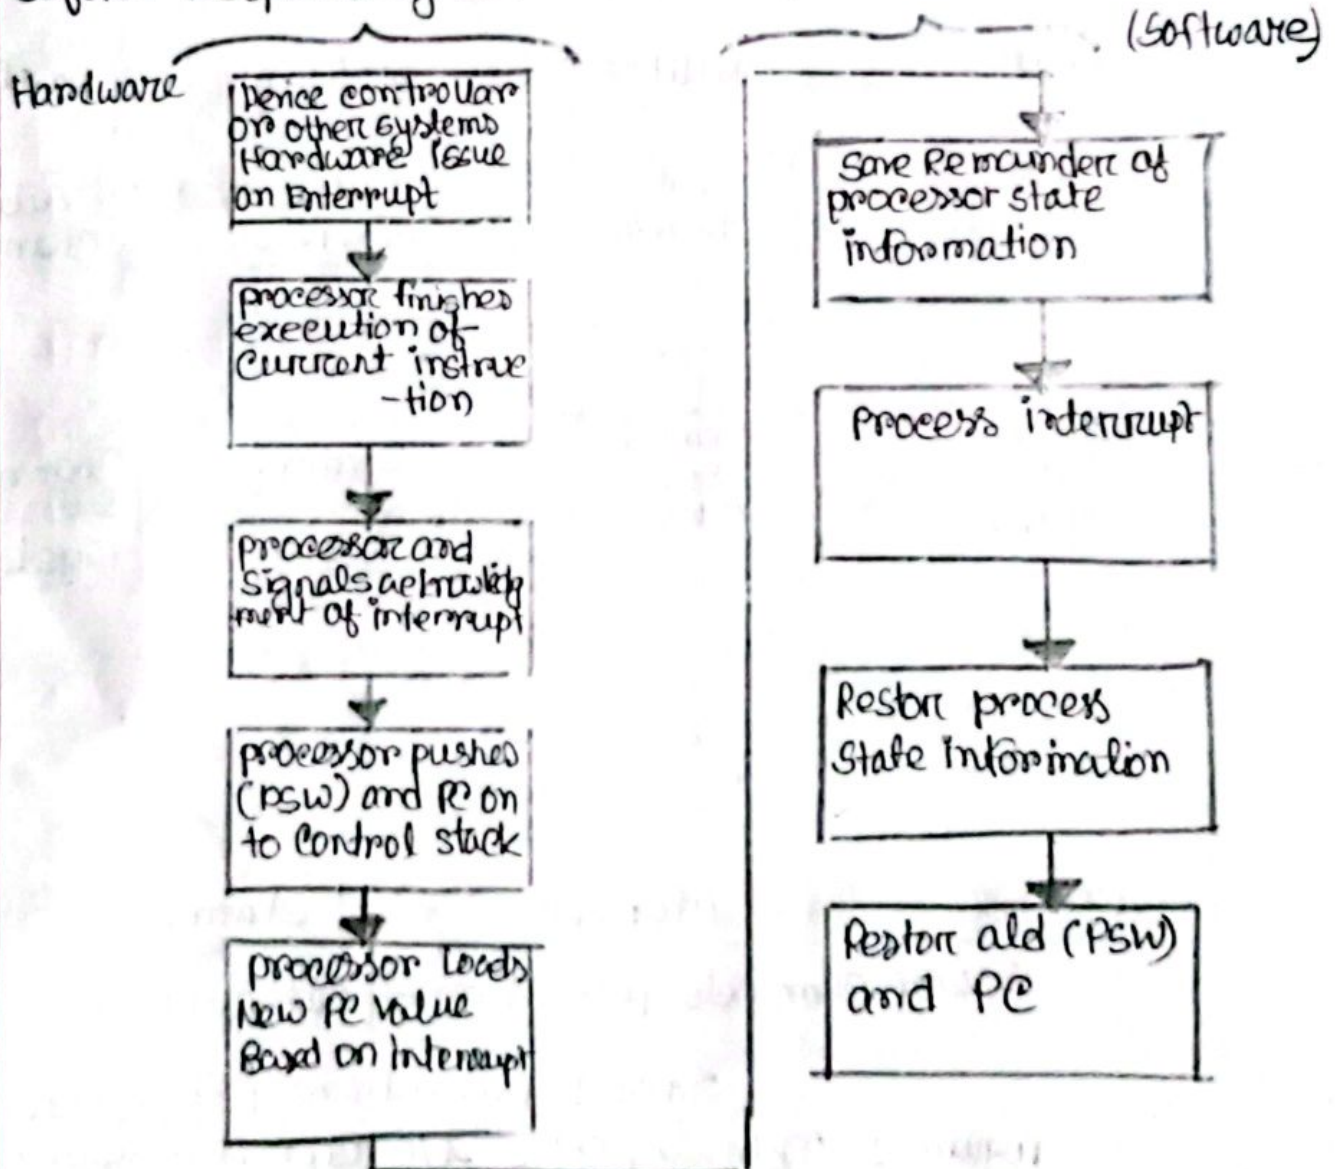 Hardware
Device controllar
or other systems
Hardware issue
an Enterrupt
processor finishes
execution of
Current instruc
-tion
processor and
signals
ment of interrupt
processor pushes
(PSW) and PC on
to control stack
processor loads
New PC value
Based on Interrupt
(Software)
Save Remainder of
processor state
information
Process interrupt
Restor process
State information
Restor old (PSW)
and PC